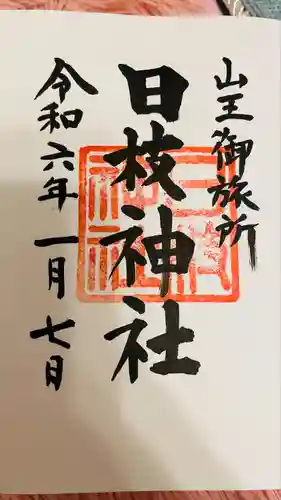 山王御旅所
日枝神社
令和六年一月七日